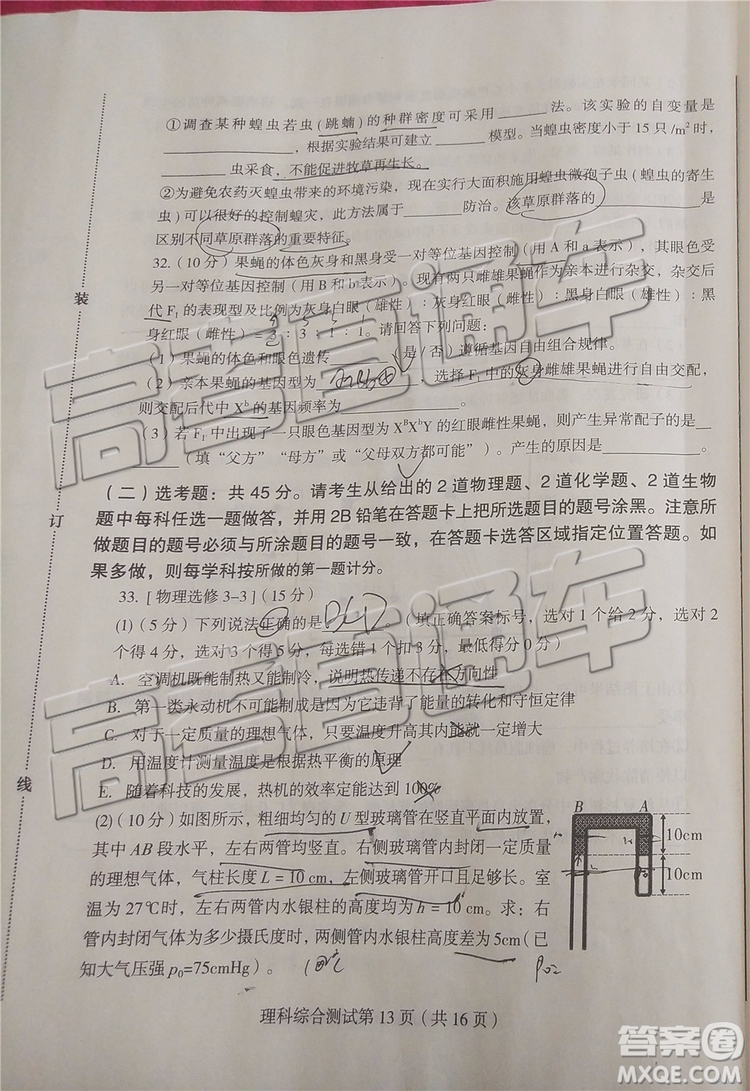 ①调查某种蝗虫若虫(跳蝻)的种群密度可采用______法。该实验的自变量是
______,根据实验结果可建立______模型。当蝗虫密度小于15只/m²时,
______虫采食,不能促进牧草再生长。
②为避免农药灭蝗虫带来的环境污染,现在实行大面积施用蝗虫微孢子虫(蝗虫的寄生
虫)可以很好的控制蝗灾,此方法属于______防治。该草原群落的______是
区别不同草原群落的重要特征。
32.(10分)果蝇的体色灰身和黑身受一对等位基因控制(用A和a表示),其眼色受
另一对等位基因控制(用B和b表示)。现有两只雌雄果蝇作为亲本进行杂交,杂交后
代F₁的表现型及比例为灰身白眼(雄性):灰身红眼(雌性):黑身白眼(雄性):黑
身红眼(雌性)=3:3:1:1。请回答下列问题:
(1)果蝇的体色和眼色遗传______(是/否)遵循基因自由组合规律。
(2)亲本果蝇的基因型为______,选择F₁中的灰身雌雄果蝇进行自由交配,
则交配后代中Xᵇ的基因频率为______。
(3)若F₁中出现了一只眼色基因型为XᴮXᵇY的红眼雌性果蝇,则产生异常配子的是___
___(填“父方”“母方”或“父母双方都可能”)。产生的原因是______。
(二)选考题:共45分。请考生从给出的2道物理题、2道化学题、2道生物
题中每科任选一题做答,并用2B铅笔在答题卡上把所选题目的题号涂黑。注意所
做题目的题号必须与所涂题目的题号一致,在答题卡选答区域指定位置答题。如
果多做,则每学科按所做的第一题计分。
33.[物理选修3-3](15分)
(1)(5分)下列说法正确的是 BCD (填正确答案标号,选对1个给2分,选对2
个得4分,选对3个得5分,每选错1个扣3分,最低得分0分)
A. 空调机既能制热又能制冷,说明热传递不存在方向性
B. 第一类永动机不可能制成是因为它违背了能量的转化和守恒定律
C. 对于一定质量的理想气体,只要温度升高其内能就一定增大
D. 用温度计测量温度是根据热平衡的原理
E. 随着科技的发展,热机的效率定能达到100%
(2)(10分)如图所示,粗细均匀的U型玻璃管在竖直平面内放置,
其中AB段水平,左右两管均竖直。右侧玻璃管内封闭一定质量
的理想气体,气柱长度L=10 cm,左侧玻璃管开口且足够长。室
温为27℃时,左右两管内水银柱的高度均为h=10 cm。求:右
管内封闭气体为多少摄氏度时,两侧管内水银柱高度差为5cm(已
知大气压强p₀=75cmHg)。
B A
10cm
10cm
理科综合测试第13页(共16页)
装
订
线
高考直通车
高考直通车
高考直通车
答案圈
MXQE.COM